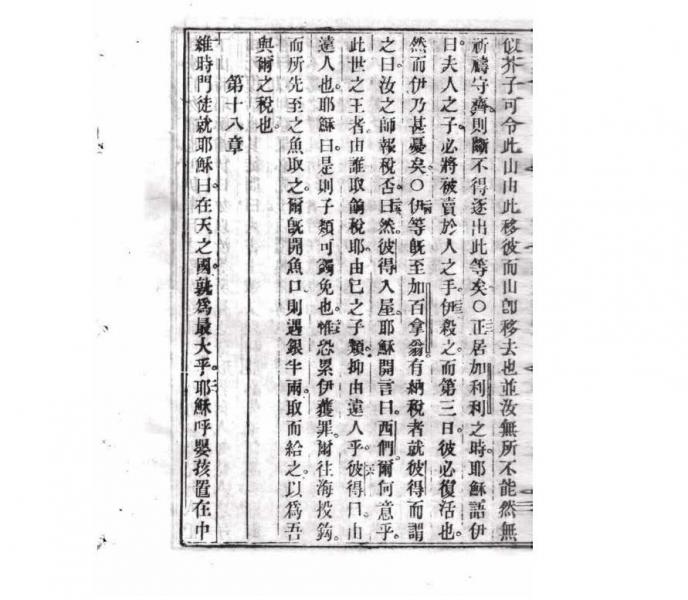 似芥子可令此山由此移彼而山卽移去也並汝無所不能然無
祈禱守齋則斷不得逐出此等矣〇正居加利利之時耶穌語伊
曰夫人之子必將被賣於人之手伊殺之而第三日彼必復活也
然而伊乃甚憂矣〇伊等旣至加百拿翁有納稅者就彼得而謂
之曰汝之師報稅否曰然彼得入屋耶穌開言曰西們爾何意乎
此世之王者由誰取餉稅耶由己之子類抑由遠人乎彼得曰由
遠人也耶穌曰是則子類可蠲免也惟恐累伊獲罪爾往海投鈎
而所先至之魚取之爾旣開魚口則遇銀半兩取而給之以爲吾
與爾之稅也
第十八章
維時門徒就耶穌曰在天之國孰爲最大乎耶穌呼嬰孩置在中